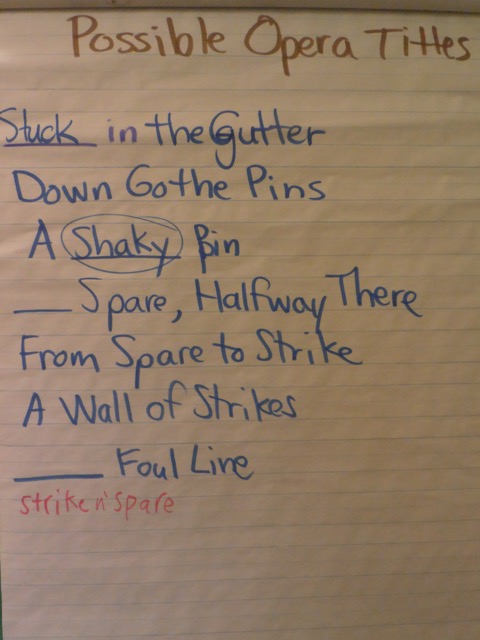 Possible Opera Titles
Stuck in the Gutter
Down Go the Pins
A Shaky Pin
___ Spare, Halfway There
From Spare to Strike
A Wall of Strikes
____ Foul Line
strike n' spare